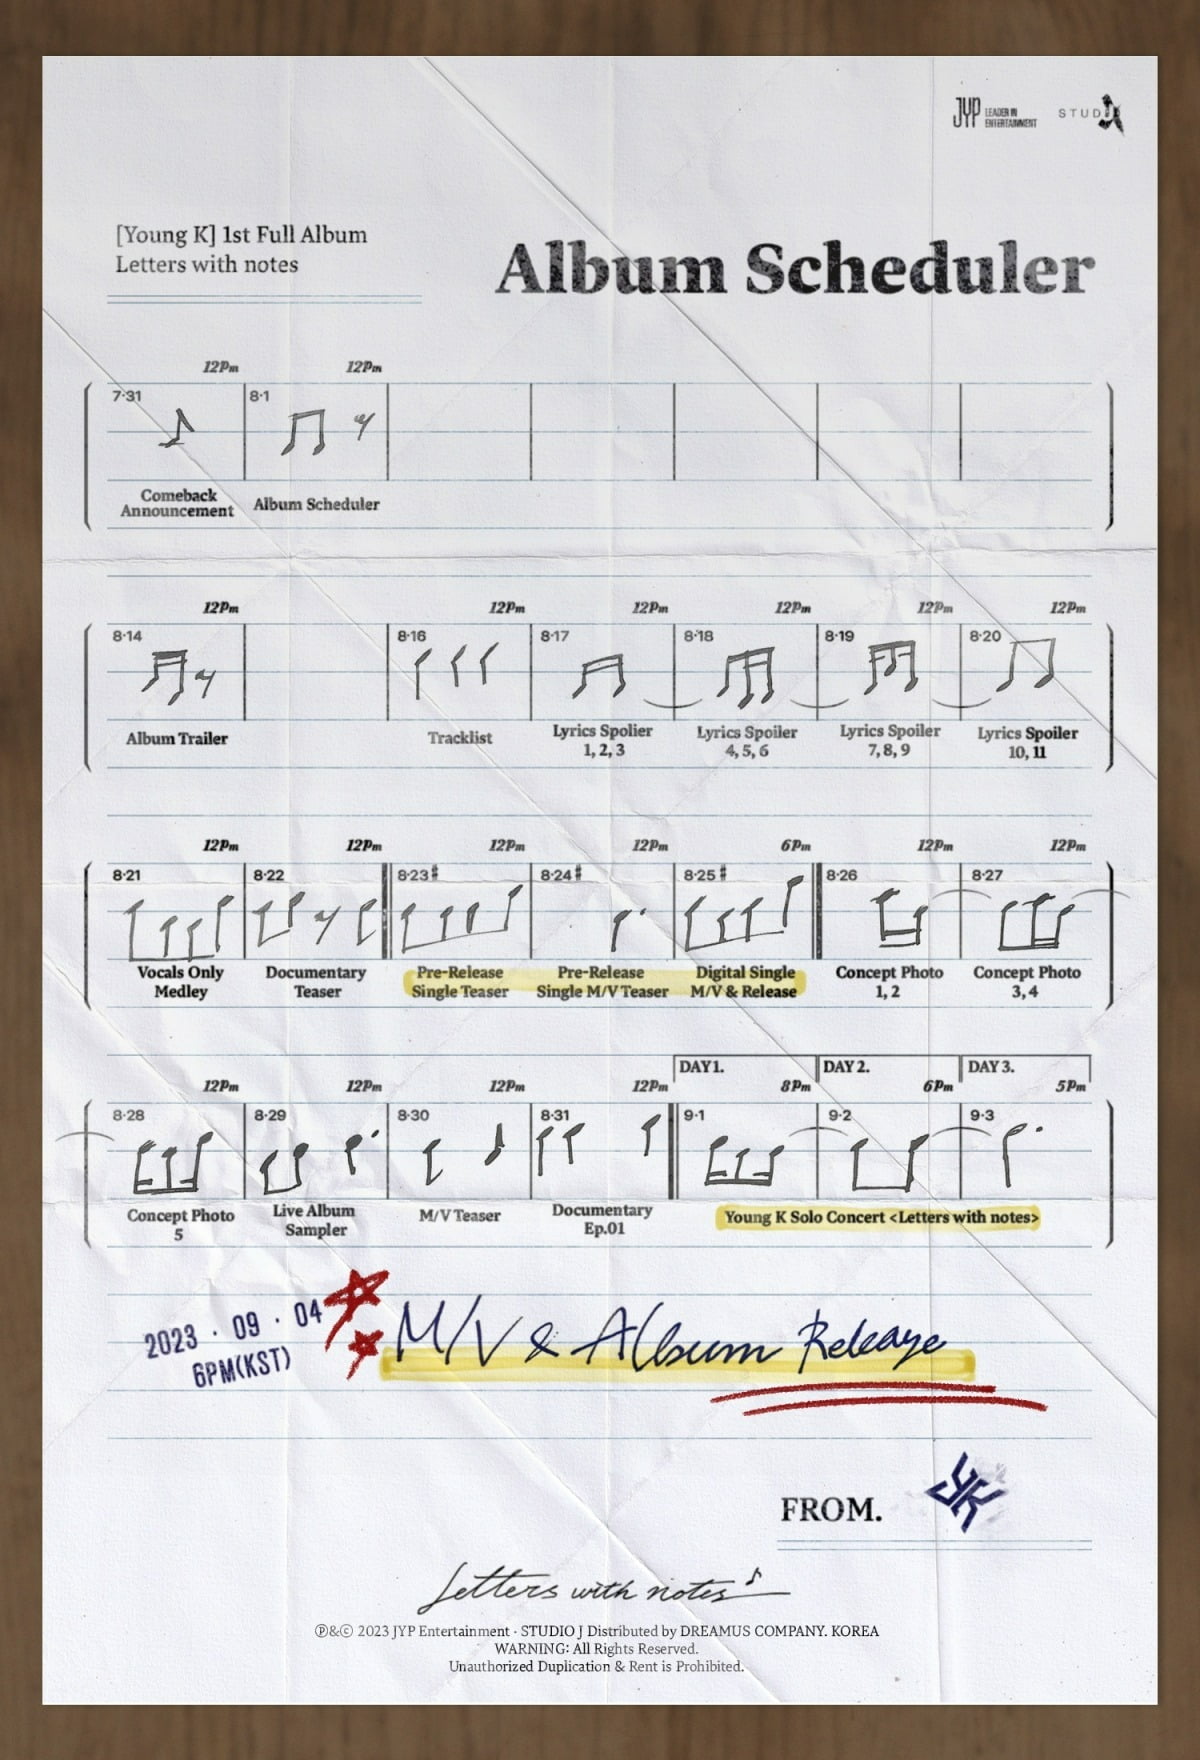 JYP LEADER IN
ENTERTAINMENT
STUDIO J
[Young K] 1st Full Album
Letters with notes
Album Scheduler
12Pm 12Pm
7·31 8·1
Comeback
Announcement
Album Scheduler
12Pm 12Pm 12Pm 12Pm 12Pm 12Pm
8·14 8·16 8·17 8·18 8·19 8·20
Album Trailer
Tracklist
Lyrics Spolier
1, 2, 3
Lyrics Spoiler
4, 5, 6
Lyrics Spoiler
7, 8, 9
Lyrics Spoiler
10, 11
12Pm 12Pm 12Pm 12Pm 6Pm 12Pm 12Pm
8·21 8·22 8·23 8·24 8·25 8·26 8·27
Vocals Only
Medley
Documentary
Teaser
Pre-Release
Single Teaser
Pre-Release
Single M/V Teaser
Digital Single
M/V & Release
Concept Photo
1, 2
Concept Photo
3, 4
DAY1. DAY 2. DAY 3.
12Pm 12Pm 12Pm 12Pm 8Pm 6Pm 5Pm
8·28 8·29 8·30 8·31 9·1 9·2 9·3
Concept Photo
5
Live Album
Sampler
M/V Teaser
Documentary
Ep.01
Young K Solo Concert <Letters with notes>
2023 · 09 · 04
6PM(KST)
M/V & Album Release
FROM. YK
Letters with notes
Ⓟ&© 2023 JYP Entertainment · STUDIO J Distributed by DREAMUS COMPANY. KOREA
WARNING: All Rights Reserved.
Unauthorized Duplication & Rent is Prohibited.